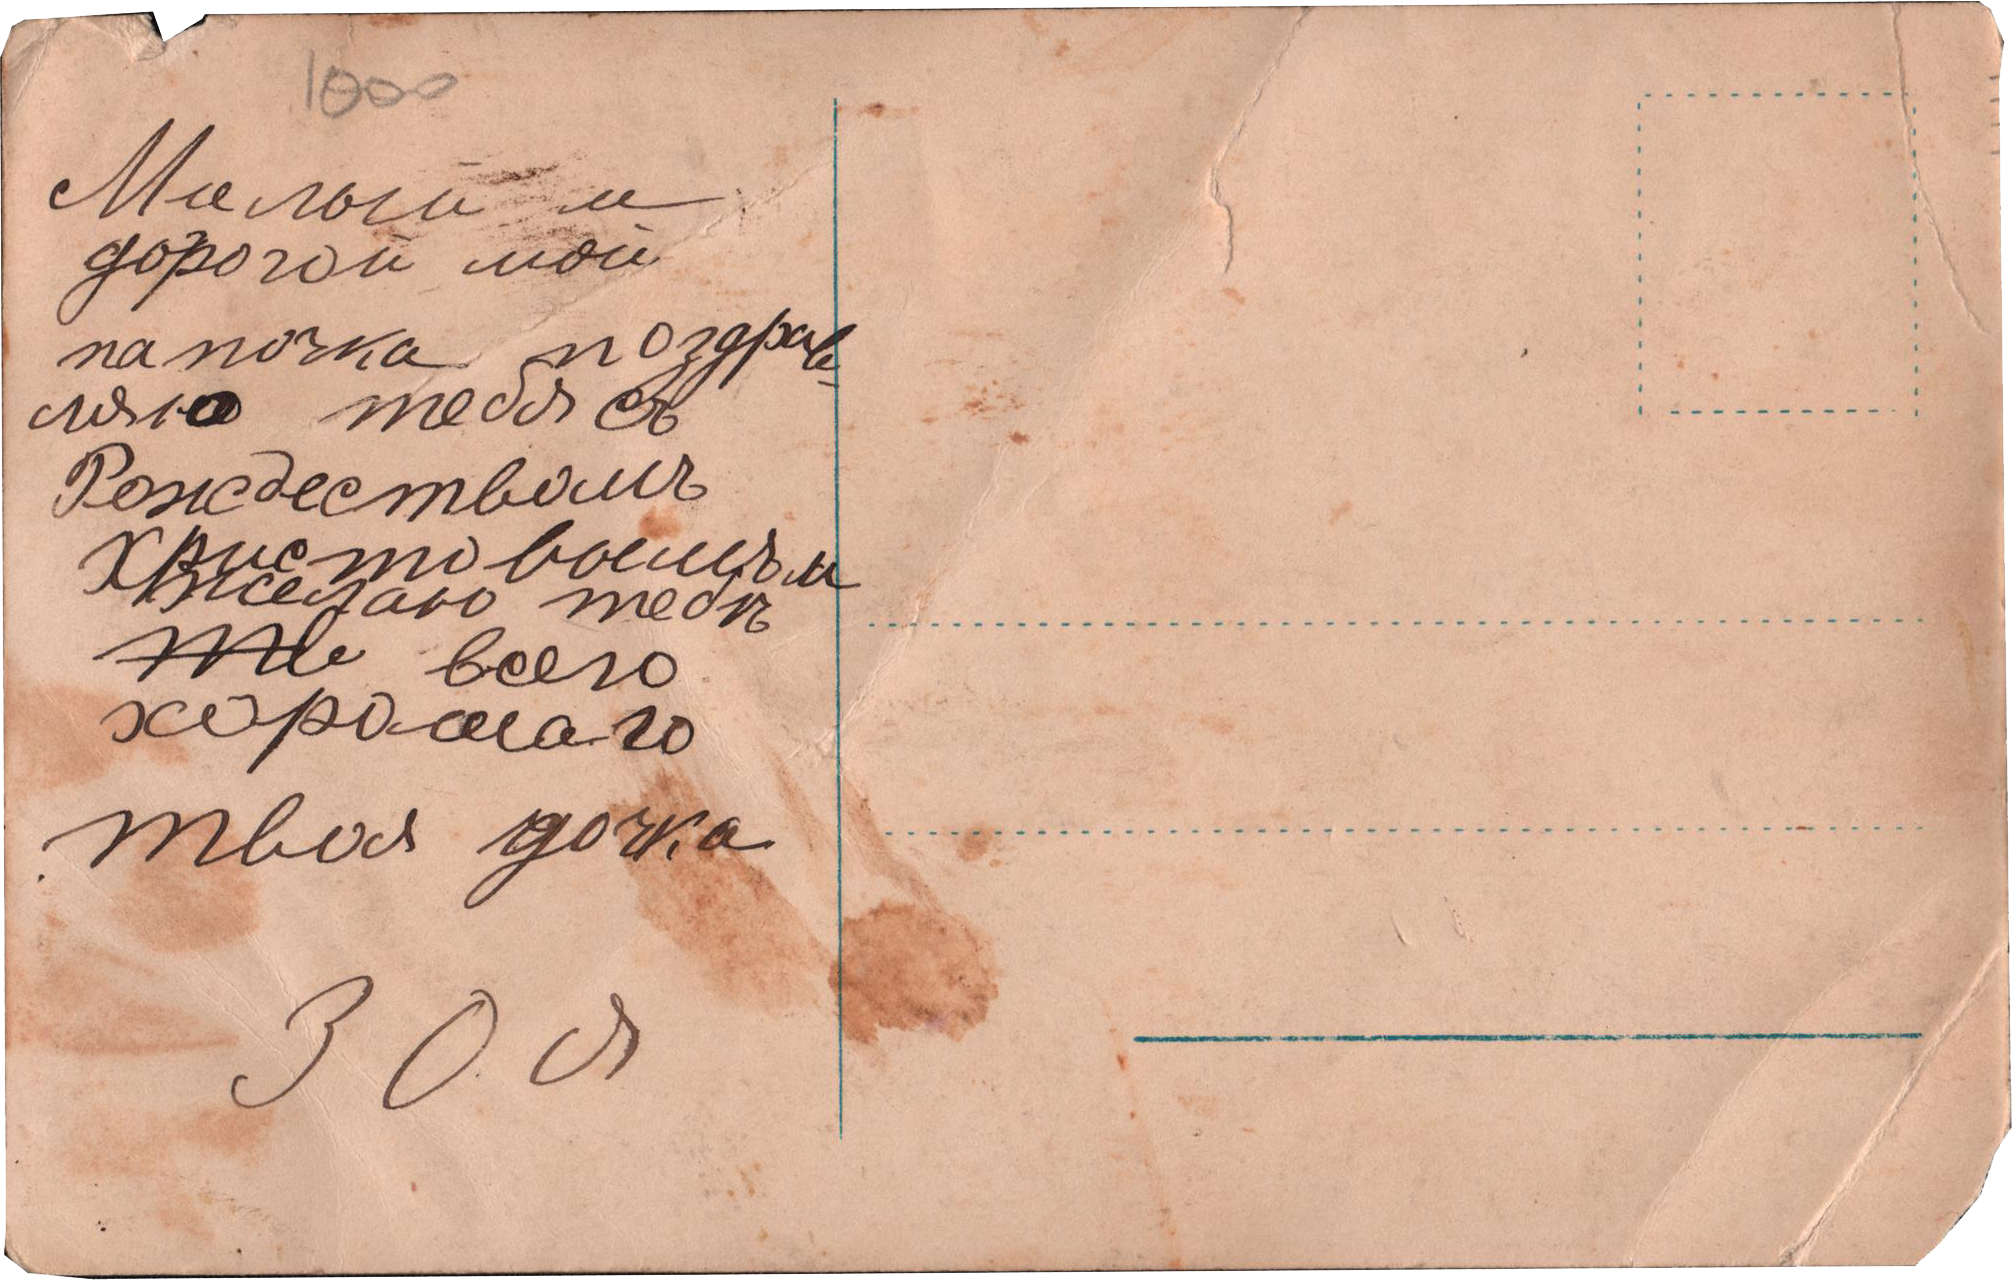 1000
Милый и
дорогой мой
папочка поздрав
ляю тебя съ
Рождествомъ
Христовымъ и
желаю тебѣ
всего
хорошаго
твоя дочка
Зоя